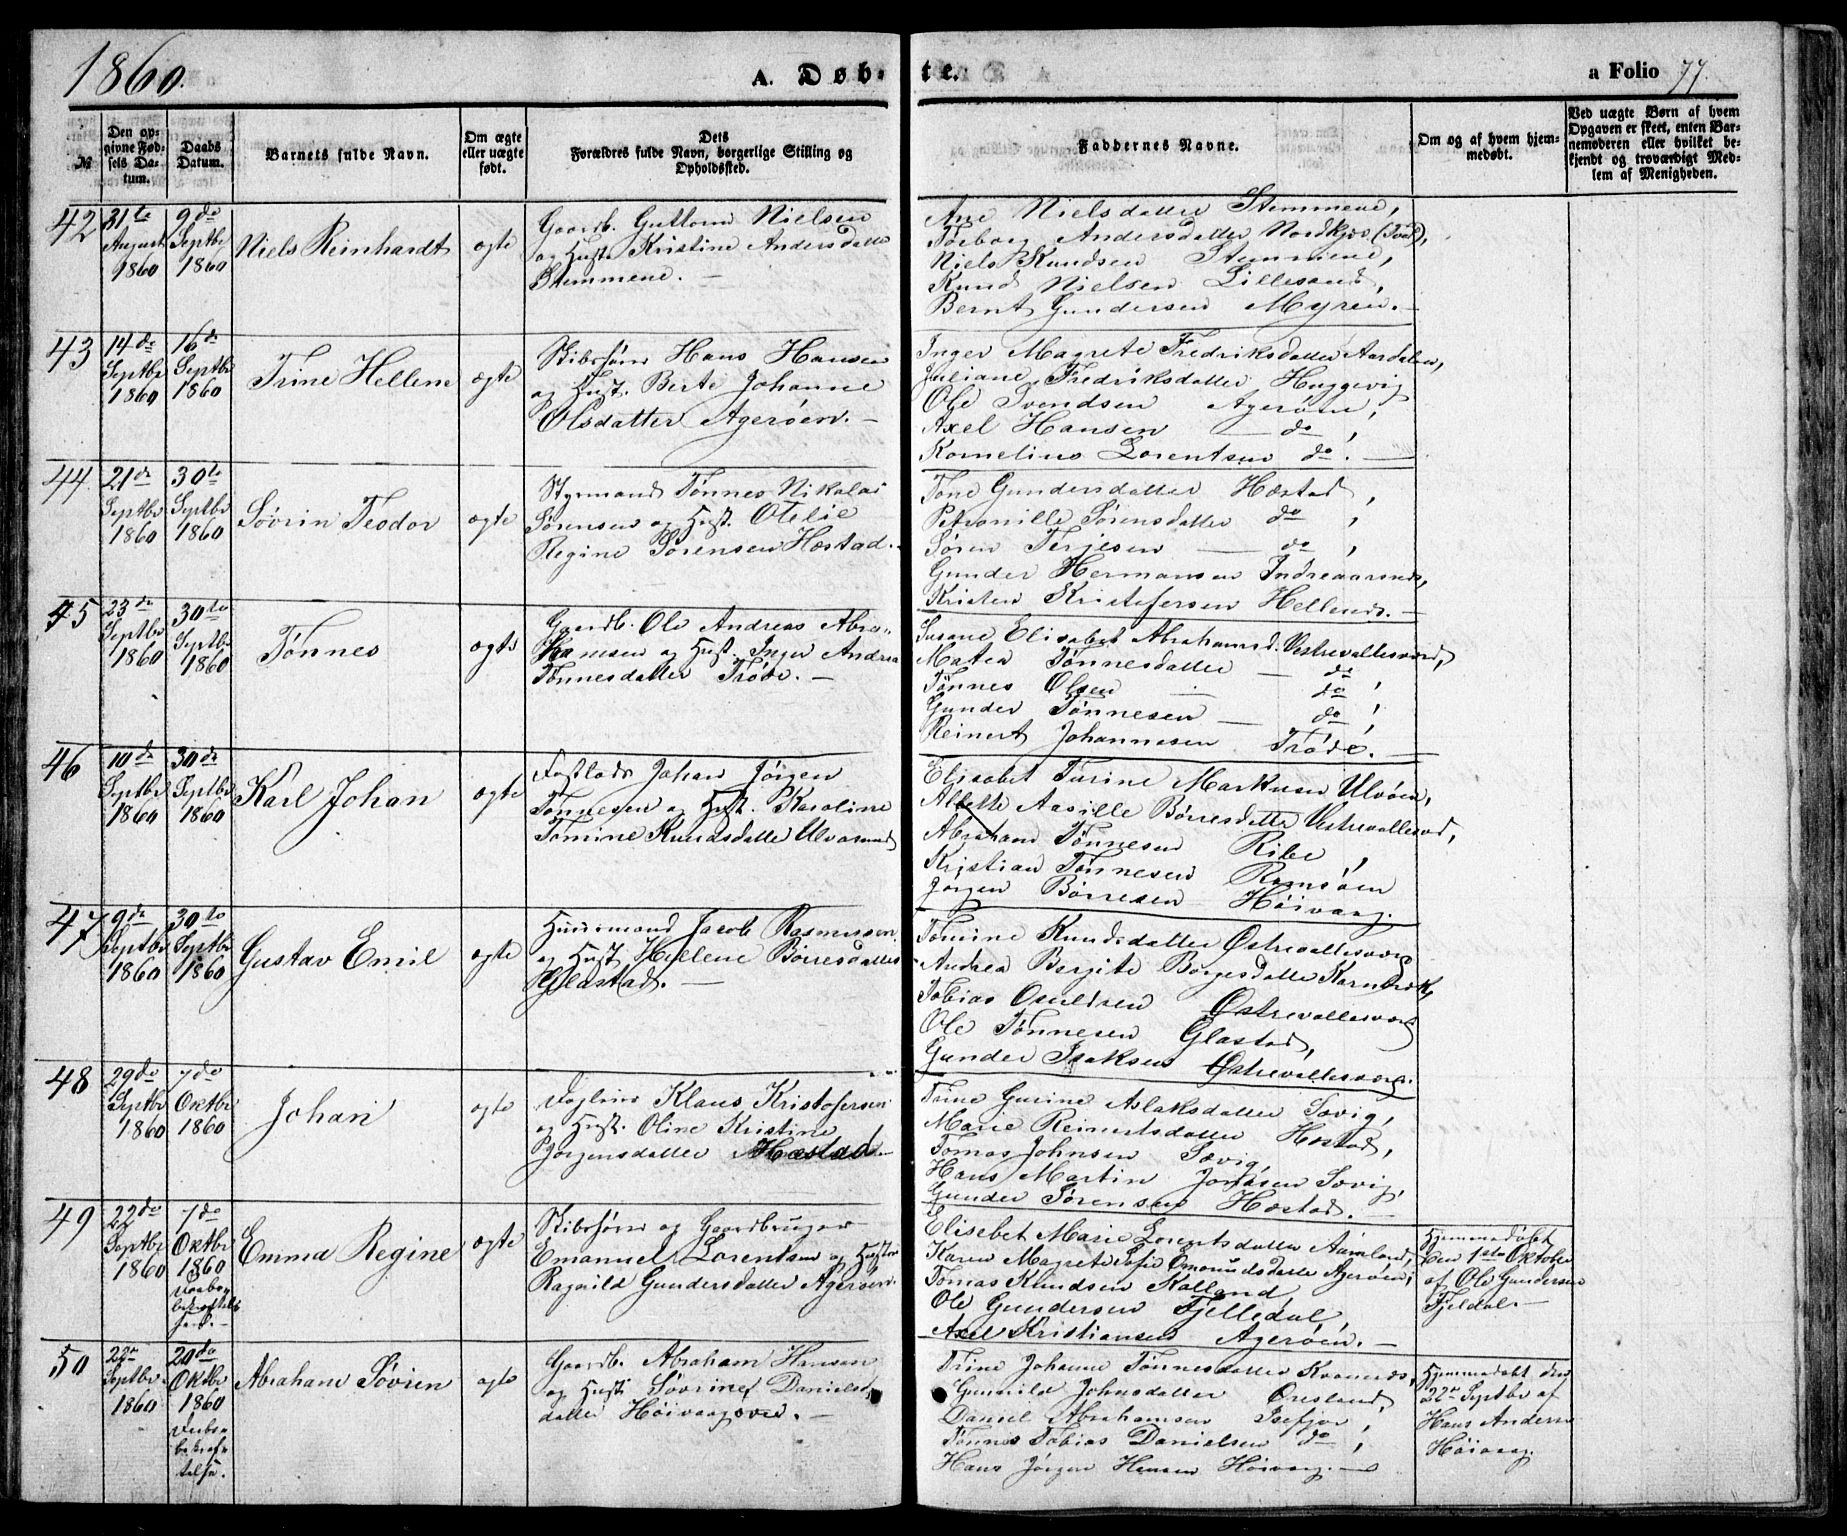 1860.
A. Døb-
te.
a Folio 77.
№
Den op-
givne Fød-
sels Da-
tum.
Daabs
Datum.
Barnets fulde Navn.
Om ægte
eller uægte
født.
Dets
Forældres fulde Navn, borgerlige Stilling og
Opholdssted.
Faddernes Navne.
Om og af hvem hjem-
medøbt.
Ved uægte Børn af hvem
Opgaven er skeet, enten Bar-
nemoderen eller hvilket be-
kjendt og troværdigt Med-
lem af Menigheden.
42
31te
August
1860
9de
Septbr
1860
Niels Reinhardt
ægte
Gaardb. Guttorm Nielsen
og Hust. Kristine Andersdatter
Stemmene. —
Ane Nielsdatter Stemmene,
Torborg Andersdatter Nordkjos (Tved),
Niels Knudsen Stemmene,
Knud Nielsen Lillesand,
Bernt Gundersen Myren. —
43
14de
Septbr
1860
16de
Septbr
1860
Trine Hellene
ægte
Skibsfører Hans Hansen
og Hust. Berte Johanne
Olsdatter Agerøen. —
Inger Magrete Fredriksdatter Aardalen,
Juliane Fredriksdatter Huggevig
Ole Svendsen Agerøen,
Axel Hansen — do ,
Kornelius Lorentsen do. —
44.
21de
Septbr
1860
30te
Septbr
1860
Søvrin Teodor
ægte
Styrmand Tønnes Nikolai
Sørensen og Hust. Otelie
Regine Sørensen Hæstad. —
Tone Gundersdatter Hæstad ,
Petronille Sørensdatter do ,
Søren Terjesen — do ,
Gunder Hermansen Indreaarsnes,
Kristen Kristofersen Hellends. —
45
23de
Septbr
1860
30te
Septbr
1860
Tønnes
ægte
Gaardb. Ole Andreas Abra-
hamsen og Hust. Inger Andrea
Tønnesdatter Trøde. —
Susane Elisabet Abrahamsd. Vestrevallesværd,
Matea Tønnesdatter — do
Tønnes Olsen do ,
Gunder Tønnesen — do ,
Reinert Johannesen Trøde. —
46
10de
Septbr
1860
30de
Septbr
1860
Karl Johan
ægte
Johan Jørgen
Tønnesen og Hust. Karoline
Tomine Knudsdatter Ulvøsund
Elisabet Turine Markusen Ulvøen,
Albette Aasille Børresdatter Vestrevallesværd,
Abraham Tønnesen Ribe ,
Kristian Tønnesen Ramsøen
Jørgen Børresen Höivaag.
47
9de
Septbr
1860
30te
Septbr
1860
Gustav Emil
ægte
Huusmand Jacob Rasmussen
og Hust. Hellene Børresdatter
Glastad. —
Tomine Knudsdatter Østrevallesværd
Andrea Bergite Børgesdatter
Tobias Osuldsen Østrevallesværd
Ole Tønnesen Glastad,
Gunder Isaksen Østrevallesværd.
48
29de
Septbr
1860
7de
Oktbr
1860
Johan
ægte
Klaus Kristofersen
og Hust. Oline Kristine
Jørgensdatter Hæstad —
Trine Gurine Aslaksdatter Sævig,
Marie Reinertsdatter Hæstad,
Tomas Johnsen Sævig,
Hans Martin Jonasen Sævig,
Gunder Sørensen Hæstad. —
49
22de
Septbr
1860
7de
Oktbr
1860
Daabsbe-
bekræftel-
se. —
Emma Regine
ægte
Skibsfører og Gaardbruger
Emanuel Lorentsen og Hustru
Ragnild Gundersdatter Agerøen.
Elisebet Marie Lorentsdatter Aamland,
Karen Magrete Sofie Omundsdatter Agerøen,
Tomas Knudsen Kalland,
Ole Gundersen Fjelledal,
Axel Kristiansen Agerøen. —
Hjemmedøbt
den 1ste Oktober
af Ole Gundersen
Fjeldal. —
50
22de
Septbr
1860
20de
Oktbr
1860
Daabs-
bekræf-
telse.
Abraham Søvrin
ægte
Gaardb. Abraham Hansen
og Hust. Søvrine Daniels-
datter Höivaagsvei. —
Trine Johanne Tønnesdatter Kvanæs,
Gunnild Johnsdatter Øresland,
Daniel Abrahamsen Isefjær,
Tønnes Tobias Danielsen do ,
Hans Jørgen Hansen Höivaag. —
Hjemmedøbt den
22de Septbr af
Hans Anders
Höivaag.